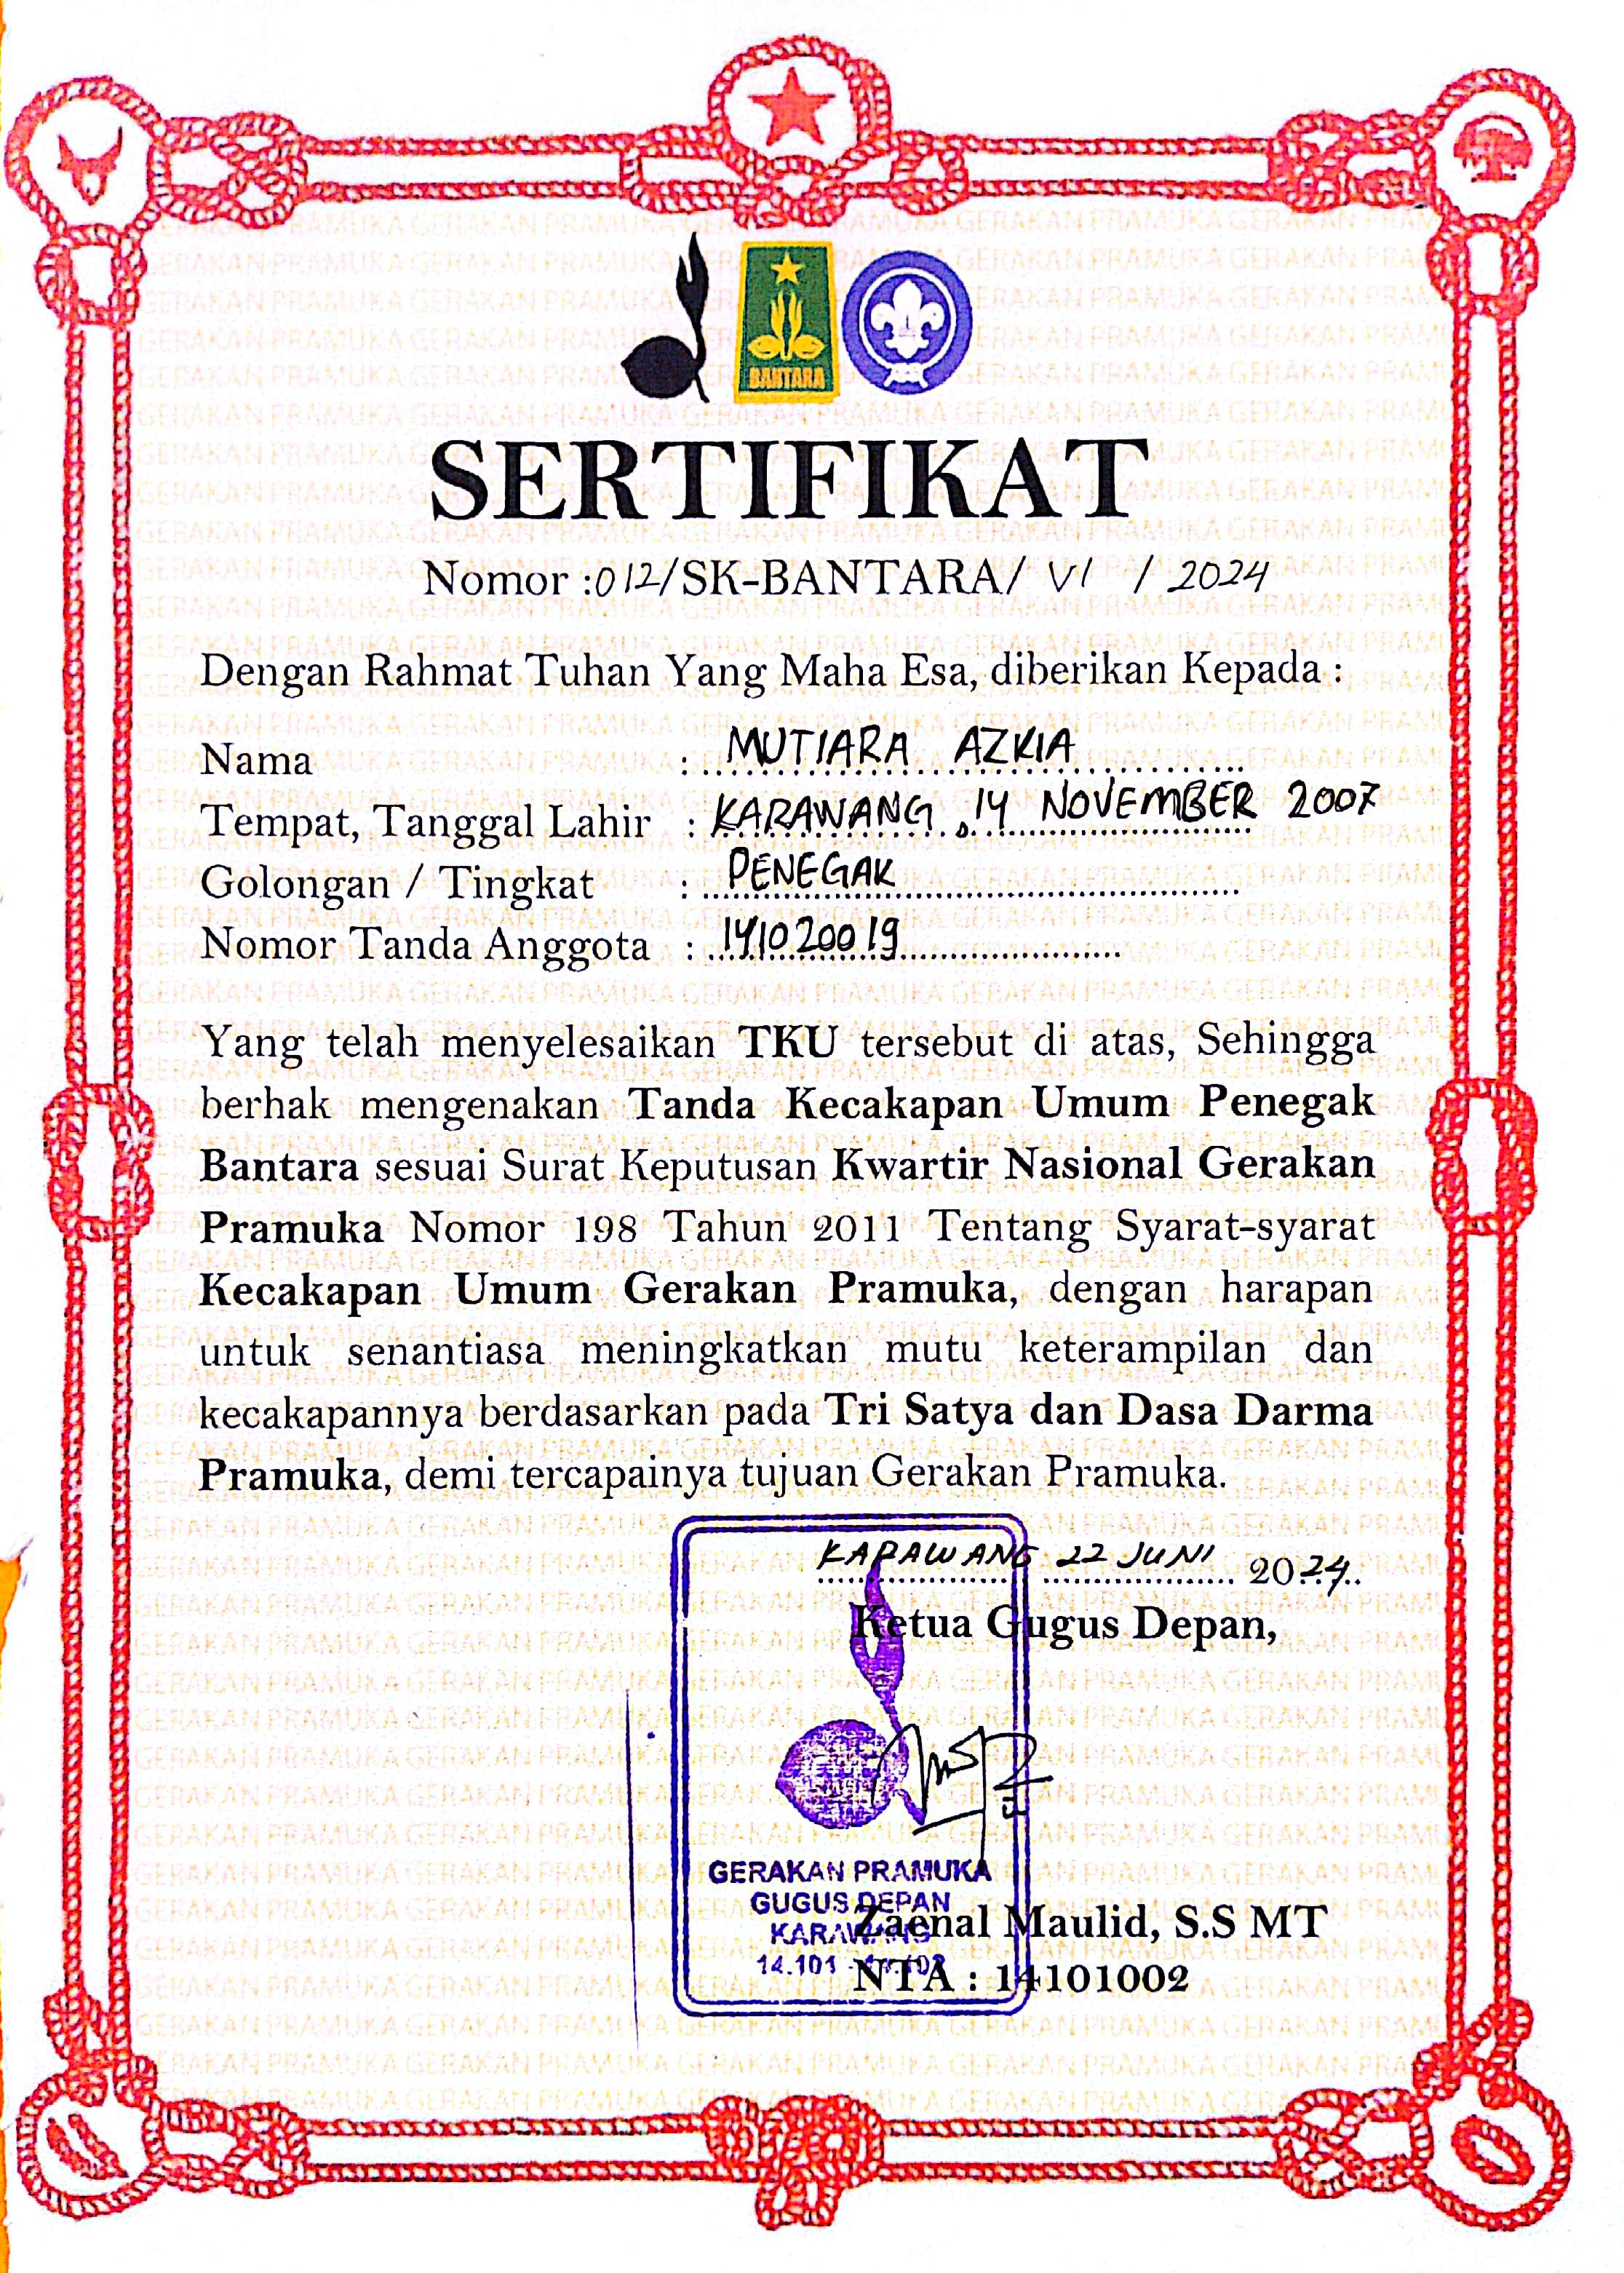 BANTARA
SERTIFIKAT
Nomor :012/SK-BANTARA/ VI / 2024
Dengan Rahmat Tuhan Yang Maha Esa, diberikan Kepada :
Nama : MUTIARA AZKIA
Tempat, Tanggal Lahir : KARAWANG, 14 NOVEMBER 2007
Golongan / Tingkat : PENEGAK
Nomor Tanda Anggota : 141020019
Yang telah menyelesaikan TKU tersebut di atas, Sehingga
berhak mengenakan Tanda Kecakapan Umum Penegak
Bantara sesuai Surat Keputusan Kwartir Nasional Gerakan
Pramuka Nomor 198 Tahun 2011 Tentang Syarat-syarat
Kecakapan Umum Gerakan Pramuka, dengan harapan
untuk senantiasa meningkatkan mutu keterampilan dan
kecakapannya berdasarkan pada Tri Satya dan Dasa Darma
Pramuka, demi tercapainya tujuan Gerakan Pramuka.
KARAWANG 22 JUNI 2024
Ketua Gugus Depan,
GERAKAN PRAMUKA
GUGUS DEPAN
KARAWANG
14.101
Zaenal Maulid, S.S MT
NTA : 14101002